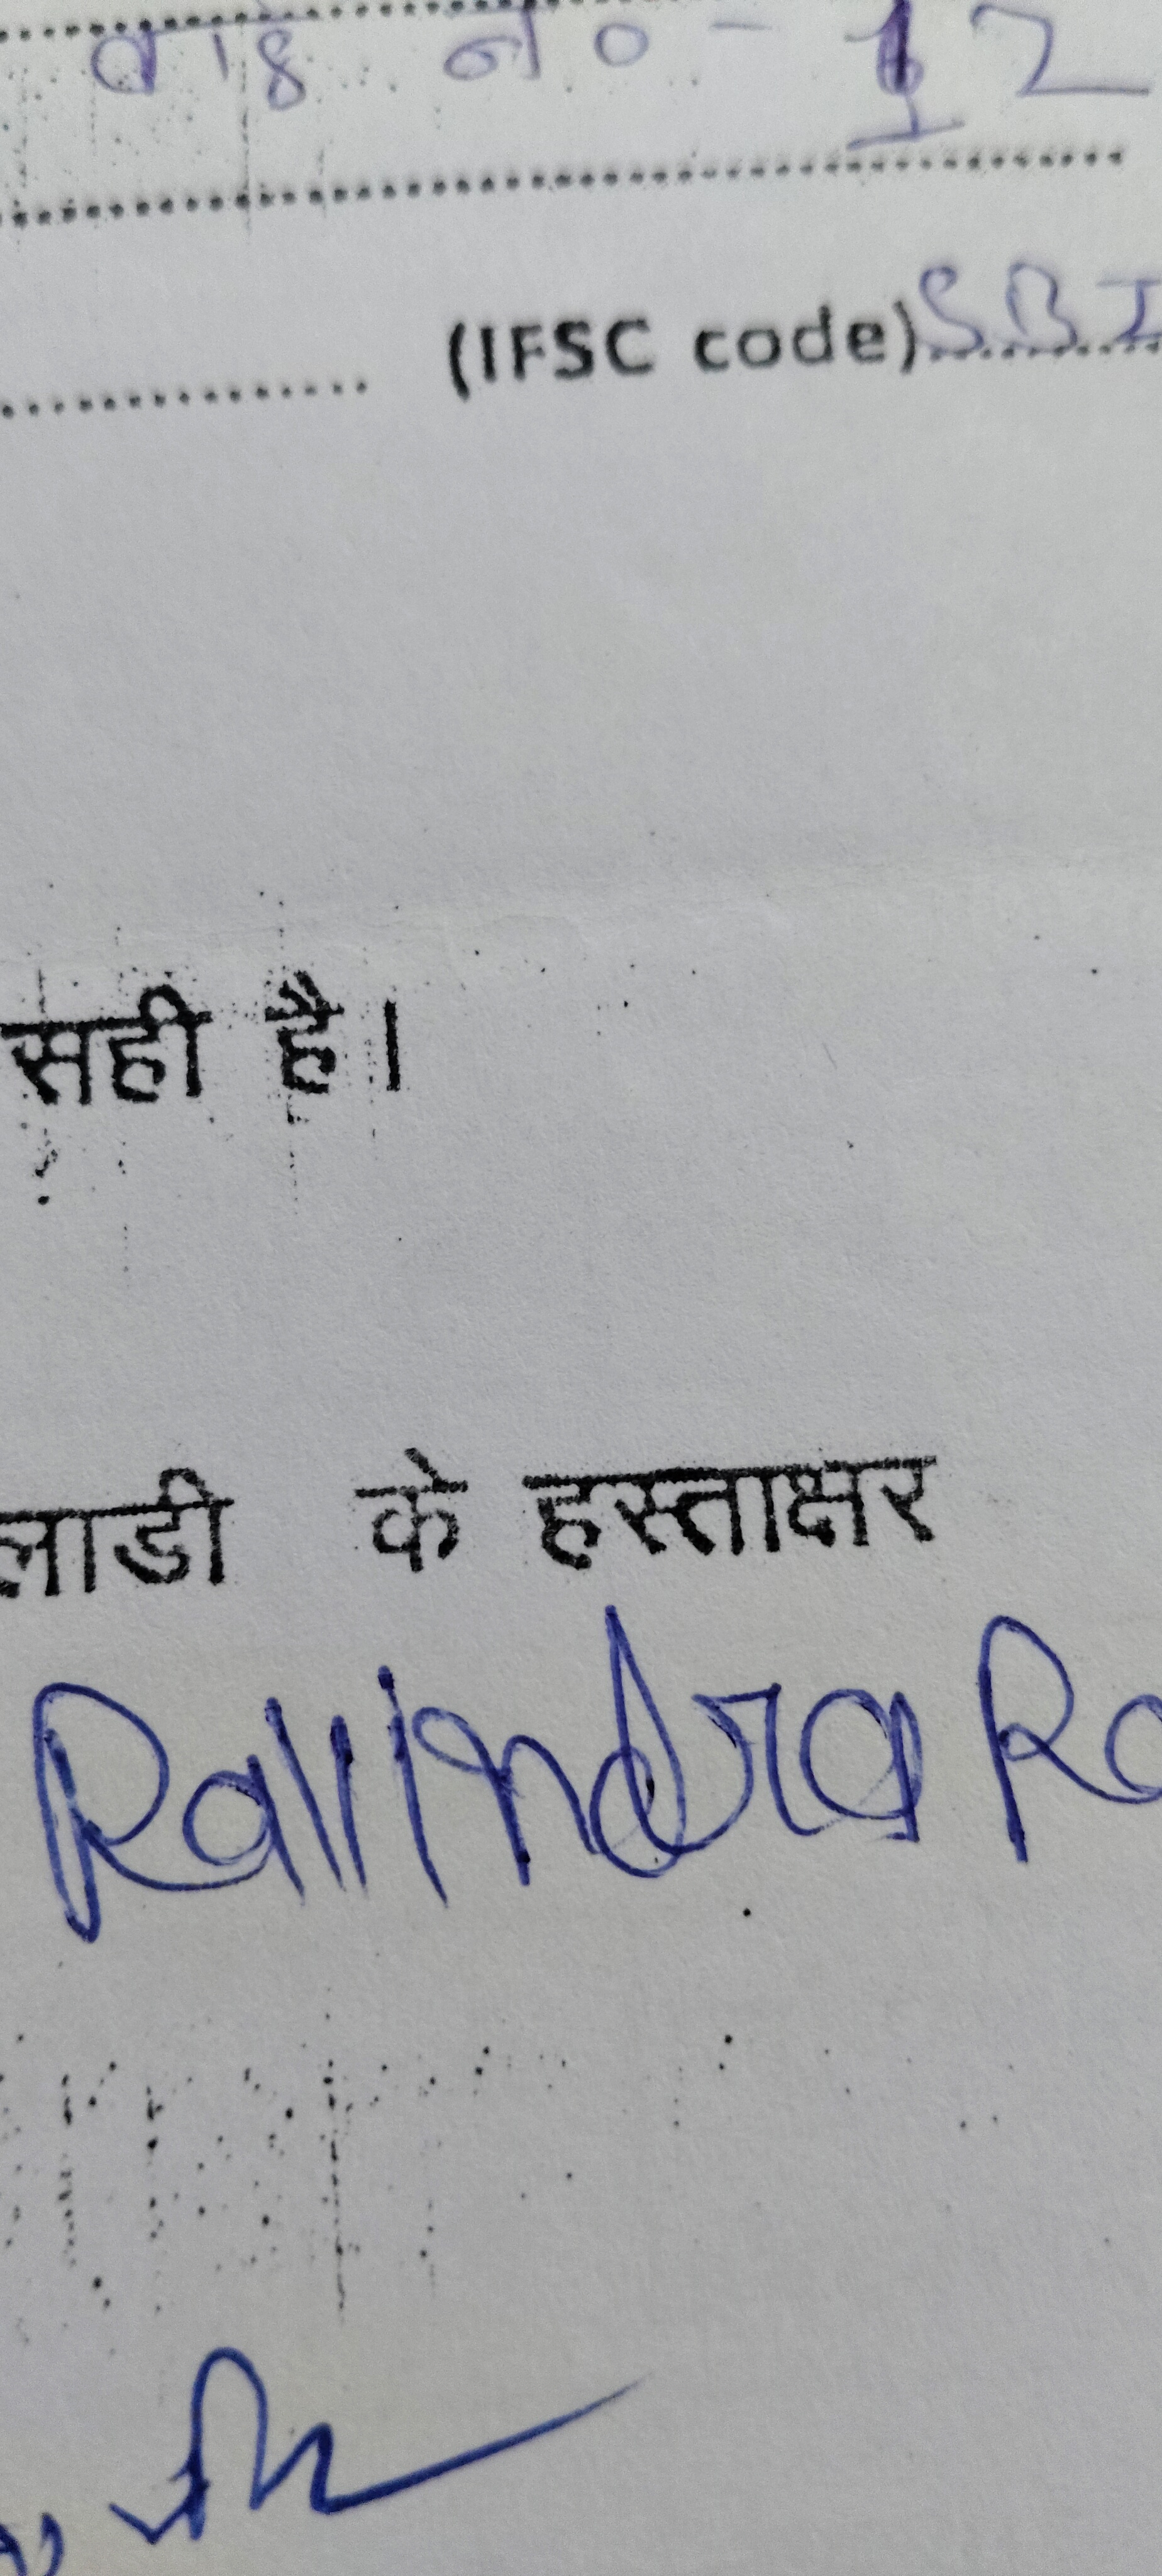 वार्ड नं० - 12
(IFSC code) SBI
सही है।
लाडी के हस्ताक्षर
Ravindra Ra